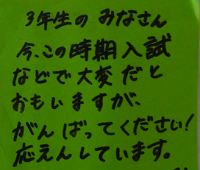 3年生の みなさん
今、この時期入試
などで大変だと
おもいますが、
がんばってください!
応えんしています。